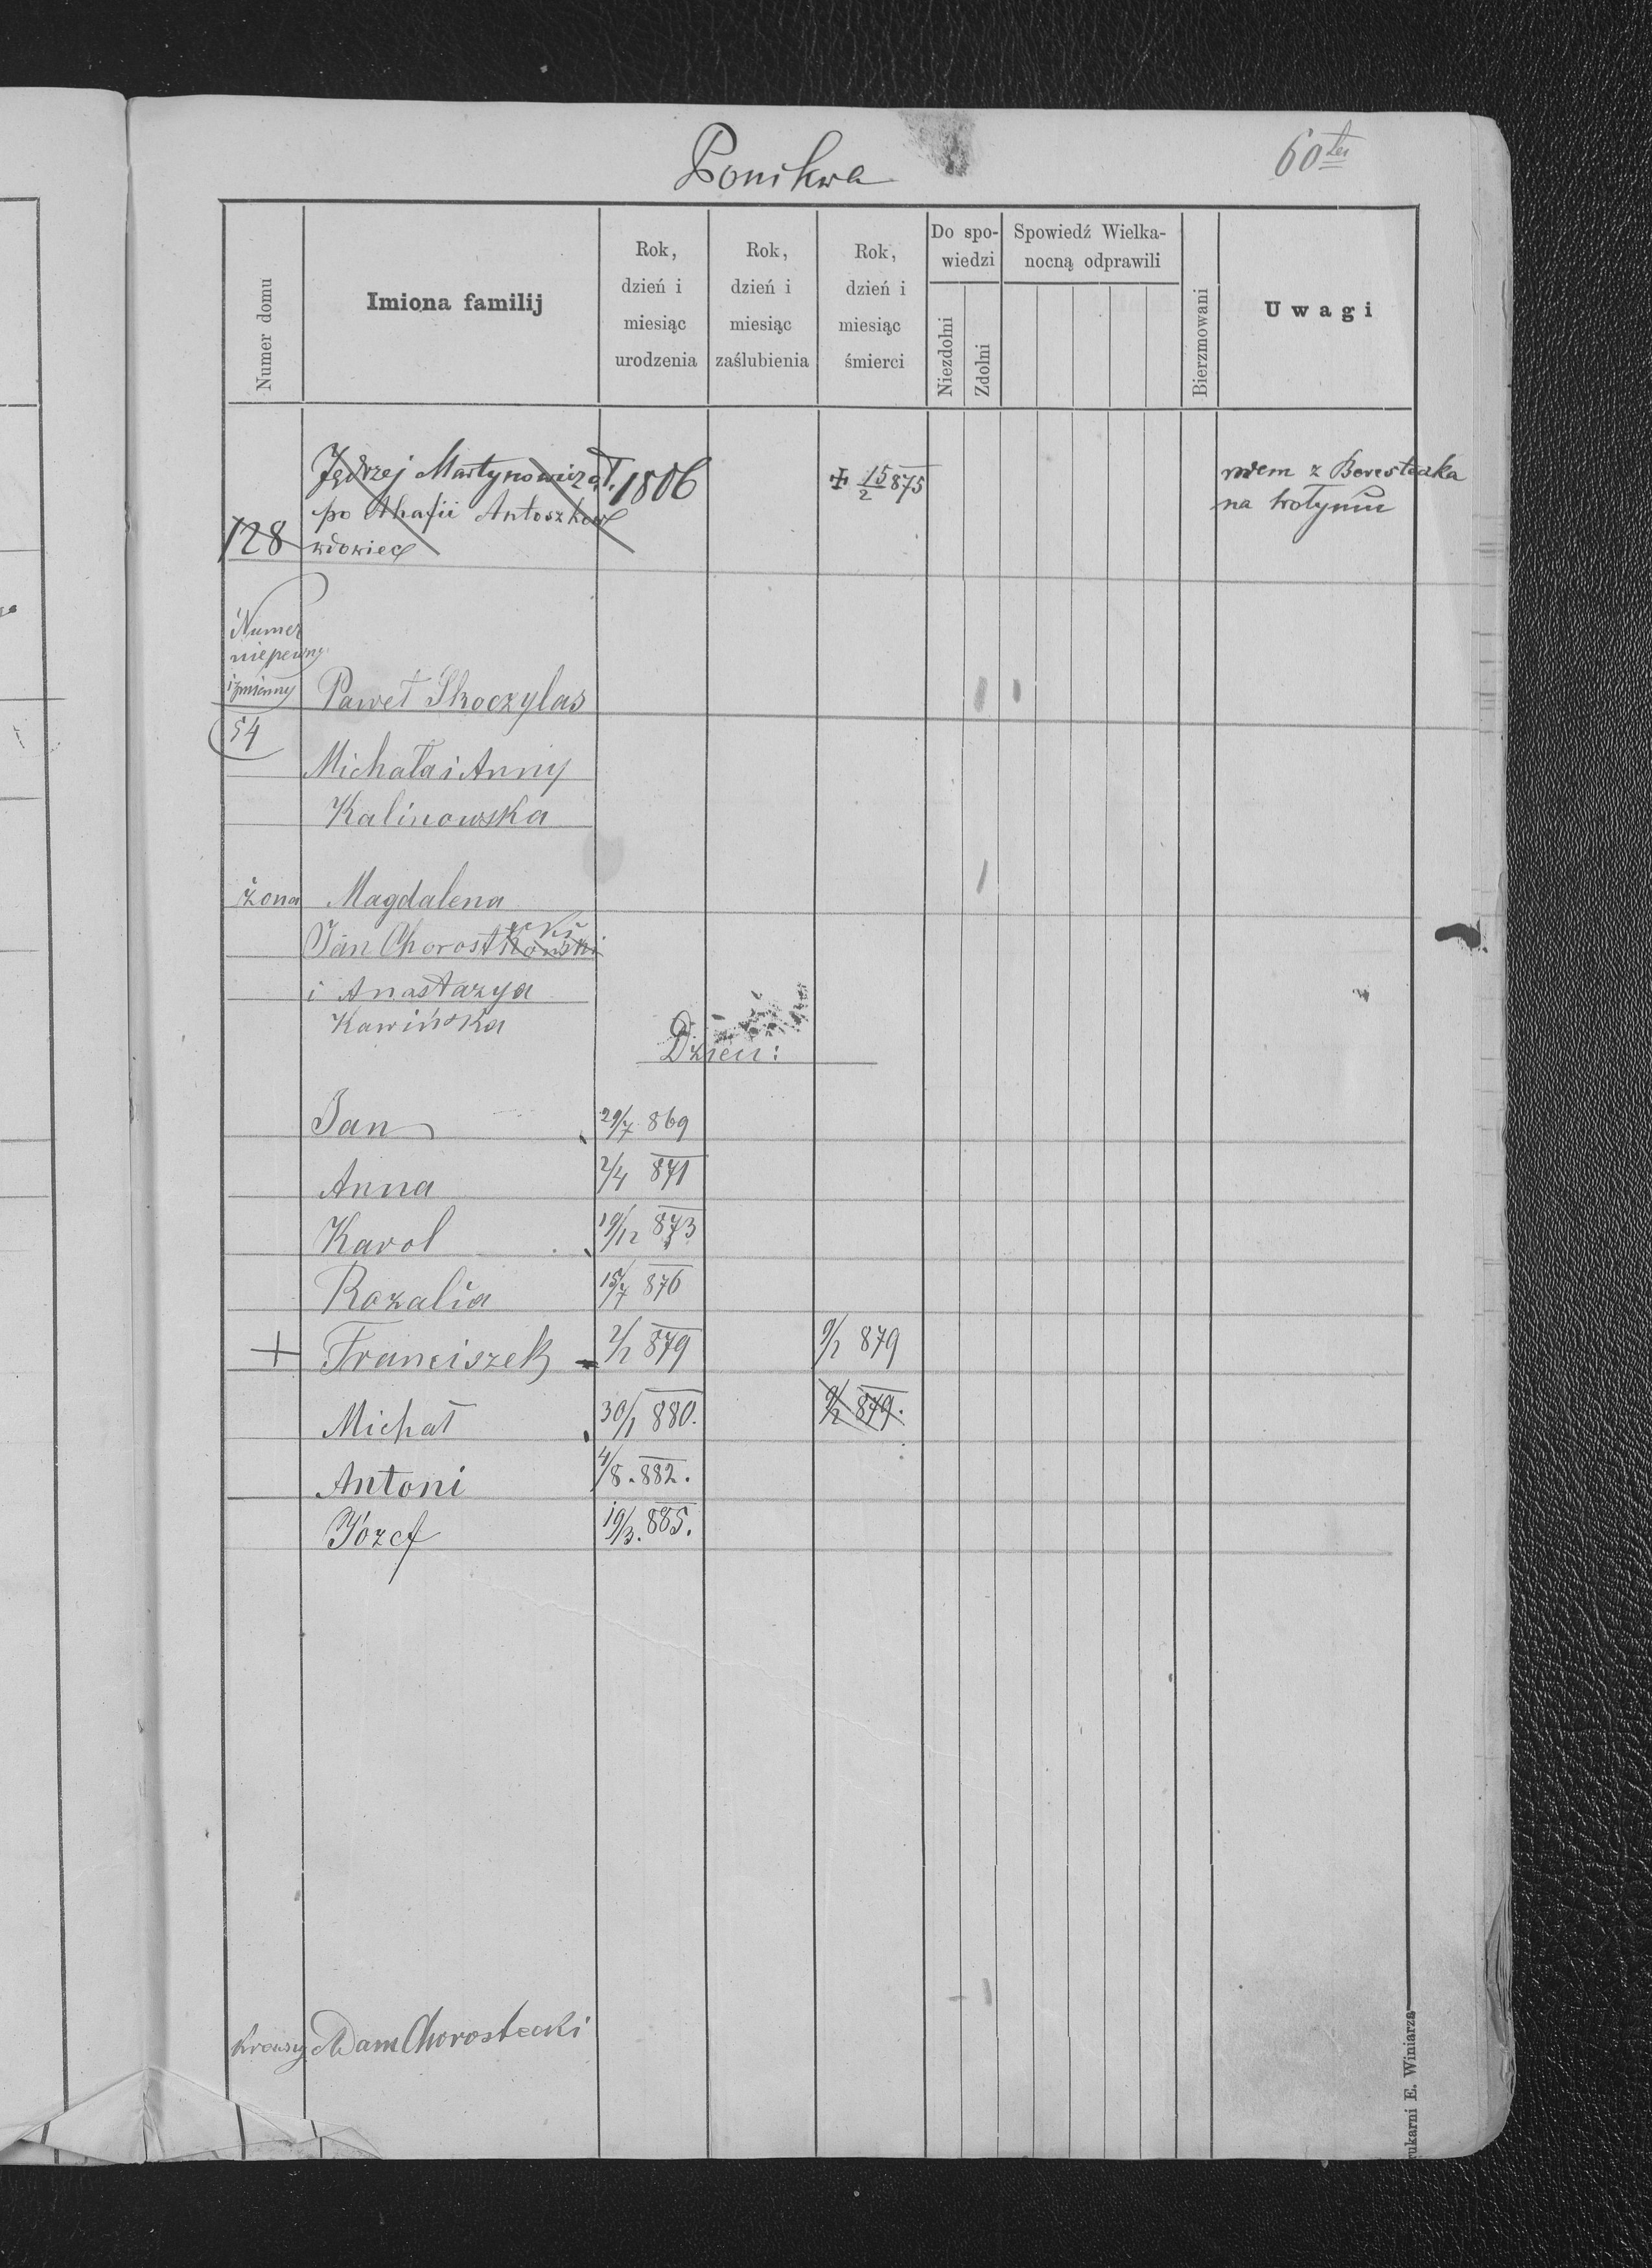 Ponikwa
60ter
Numer domu
Imiona familij
Rok,
dzień i
miesiąc
urodzenia
Rok,
dzień i
miesiąc
zaślubienia
Rok,
dzień i
miesiąc
śmierci
Do spo-
wiedzi
Niezdolni
Zdolni
Spowiedź Wielka-
nocną odprawili
Bierzmowani
Uwagi
Jędrzej Martynowicz 1806 ‡ 15/2 875 z Beresteczka
po Ahafii Antoszków na Wołyniu
128 wdowiec
Numer
niepewny
i zmienny Paweł Skoczylas
54
Michała i Anny
Kalinowska
żona Magdalena
Jan Chorostkowski ecki
i Anastazya
Kawińska
Dzieci:
Jan 29/7 869
Anna 2/4 871
Karol 19/12 873
Rozalia 15/7 876
+ Franciszek 2/2 879 9/2 879
Michał 30/1 880. 9/2 879.
Antoni 4/8. 882.
Józef 19/3. 885.
Adam Chorostecki
ukarni E. Winiarza